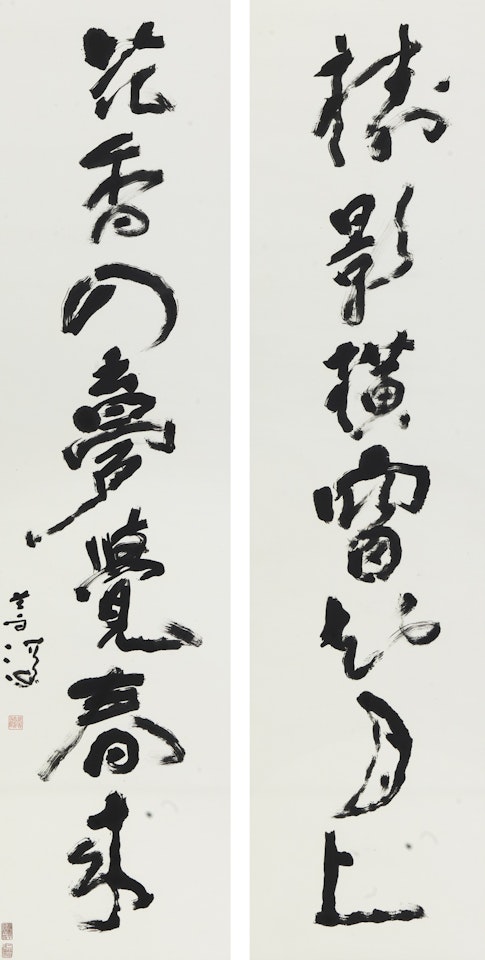 樹影橫窗知月上
花香入夢覺春來